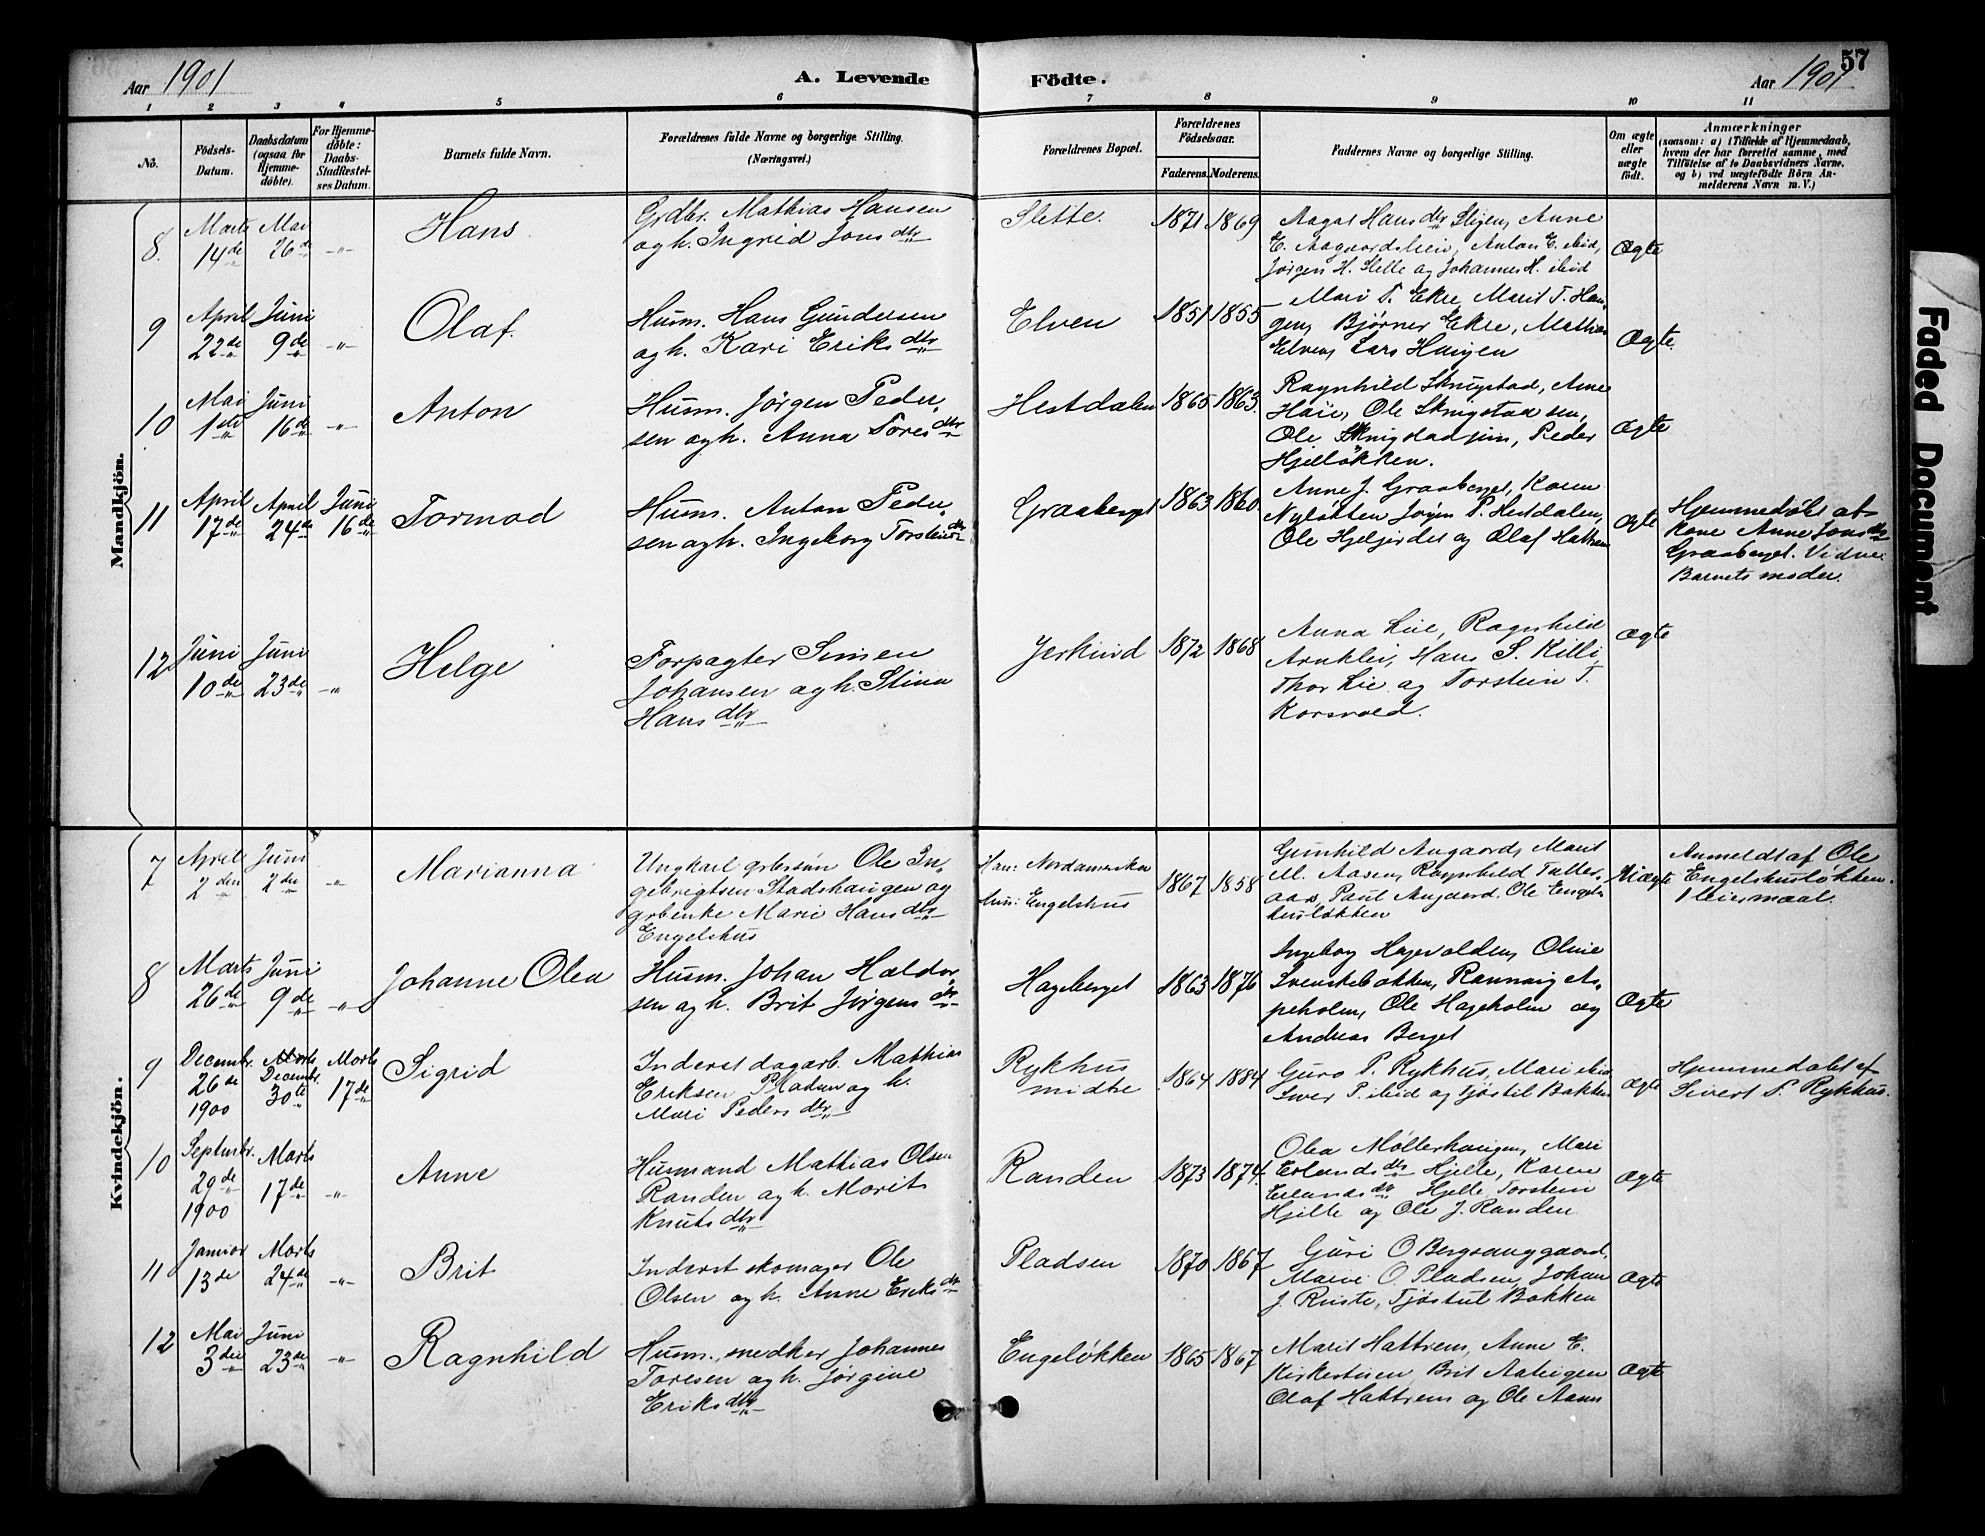 57
Aar 1901
A. Levende
Födte.
Aar 1901
1 2 3 4 5 6 7 8 9 10 11
No.
Födsels-Datum.
Daabsdatum (ogsaa for Hjemme-döbte).
For Hjemme-døbte: Daabs-Stadfæstel-ses Datum.
Barnets fulde Navn.
Forældrenes fulde Navne og borgerlige Stilling.
(Næringsvei.)
Forældrenes Bopæl.
Forældrenes Fødselsaar.
Faderens. Moderens.
Faddernes Navne og borgerlige Stilling.
Om ægte eller uægte født.
Anmærkninger
(saasom: a) i Tilfælde af Hjemmedaab,
hvem der har forrettet samme, med
Tilføielse af to Daabsvidners Navne,
og b) ved uægtefödte Börn An-
melderens Navn m. V.)
Mandkjön.
8. Marts 14de Mai 26de -"- Hans
Grdbr. Mathias Hansen
og h. Ingrid Jonsdtr
Slette. 1871 1869
Aagat Hansdtr Stigen, Anne
E. Aagaardslien, Anton E. ibid,
Jørgen H. Slette og Johannes H. ibid
Ægte
9 April 22de Juni 9de -"- Olaf.
Husm. Hans Gundersen
og h. Kari Eriksdtr
Elven 1851 1855
Mari P. Ekre, Marit T. Hau-
gen, Bjørner Ekre, Mathias
Elven, Lars Haugen
Ægte.
10 Mai 1ste Juni 16de -"- Anton
Husm. Jørgen Peder-
sen og h. Anna Toresdtr
Hestdalen 1865 1863.
Ragnhild Skrugstad, Anne
Haie, Ole Skrugstad sen,
Ole Skrugstad jun, Peder
Hjelløkken.
Ægte
11 April 17de April 24de Juni 16de Tormod
Husm. Anton Peder-
sen og h. Ingeborg Torsteinsdtr
Graaberget 1863 1860.
Anne J. Graaberget, Karen
Nyløkken Jørgen P. Hestdalen,
Ole Hjelgjerdet og Olaf Hattrem
Ægte
Hjemmedøbt af
Kone Anne Jonsdtr
Graaberget. Vidne:
Barnets moder.
12 Juni 10de Juni 23de -"- Helge
Forpagter Simen
Johansen og h. Stina
Hansdtr
Jerkind 1872 1868
Anna Lie, Ragnhild
Arnklei, Hans S. Killi,
Thor Lie og Torstein T.
Korsvold.
Ægte
Kvindekjön.
7 April 2den Juni 2den -"- Marianna
Ungkarl grbrsøn Ole In-
gebrigtsen Stadshaugen og
grbenke Marie Hansdtr
Engelshus
Han: Nordamerika
Hun: Engelshus
1867 1858
Gunhild Aagaard, Marit
M. Aasen, Ragnhild Tallev-
aas, Paul Aagaard. Ole Engels-
husløkken
Uægte
Anmeldt af Ole
Engelshusløkken.
1 leiermaal.
8 Marts 26de Juni 9de -"- Johanne Olea
Husm. Johan Haldor-
sen og h. Brit Jørgensdtr
Hageberget 1863 1876
Ingeborg Hagevolden, Oline
Svenskebakken, Rannvig As-
peholen, Ole Hageholen og
Andreas Berget
Ægte
9 Decembr. 26de 1900 Marts Decembr. 30te Marts 17de Sigrid
Inderst dagarb. Mathias
Eriksen Pladsen og h.
Mari Pedersdtr
Rykhus
midtre
1864 1884
Guro P. Rykhus, Mari ibid
Iver P. ibid og Tjøstil Bakken
Ægte
Hjemmedøbt af
Sivert P. Rykhus.
10 Septembr. 29de 1900 Marts 17de -"- Anne
Husmand Mathias Olsen
Randen og h. Marit
Knutsdtr
Randen 1873 1874.
Olea Møllerhaugen, Mari
Erlandsdtr Hjelle, Karen
Erlandsdtr Hjelle Torstein
Hjelle og Ole J. Randen
Ægte
11 Januar 13de Marts 24de -"- Brit
Inderst skomager Ole
Olsen og h. Anne Eriksdtr
Pladsen 1870 1867
Guri O Bergsauggaard,
Marie O. Pladsen, Johan
J. Ruste, Tjøstul Bakken
Ægte
12 Mai 3die Juni 23de -"- Ragnhild
Husm., snedker Johannes
Toresen og h. Jørgine
Eriksdtr
Engeløkken 1865 1867
Marit Hattrem, Anne E.
Kirkestuen Brit Aateigen
Olaf Hattrem og Ole Aanes
Ægte
Faded Document